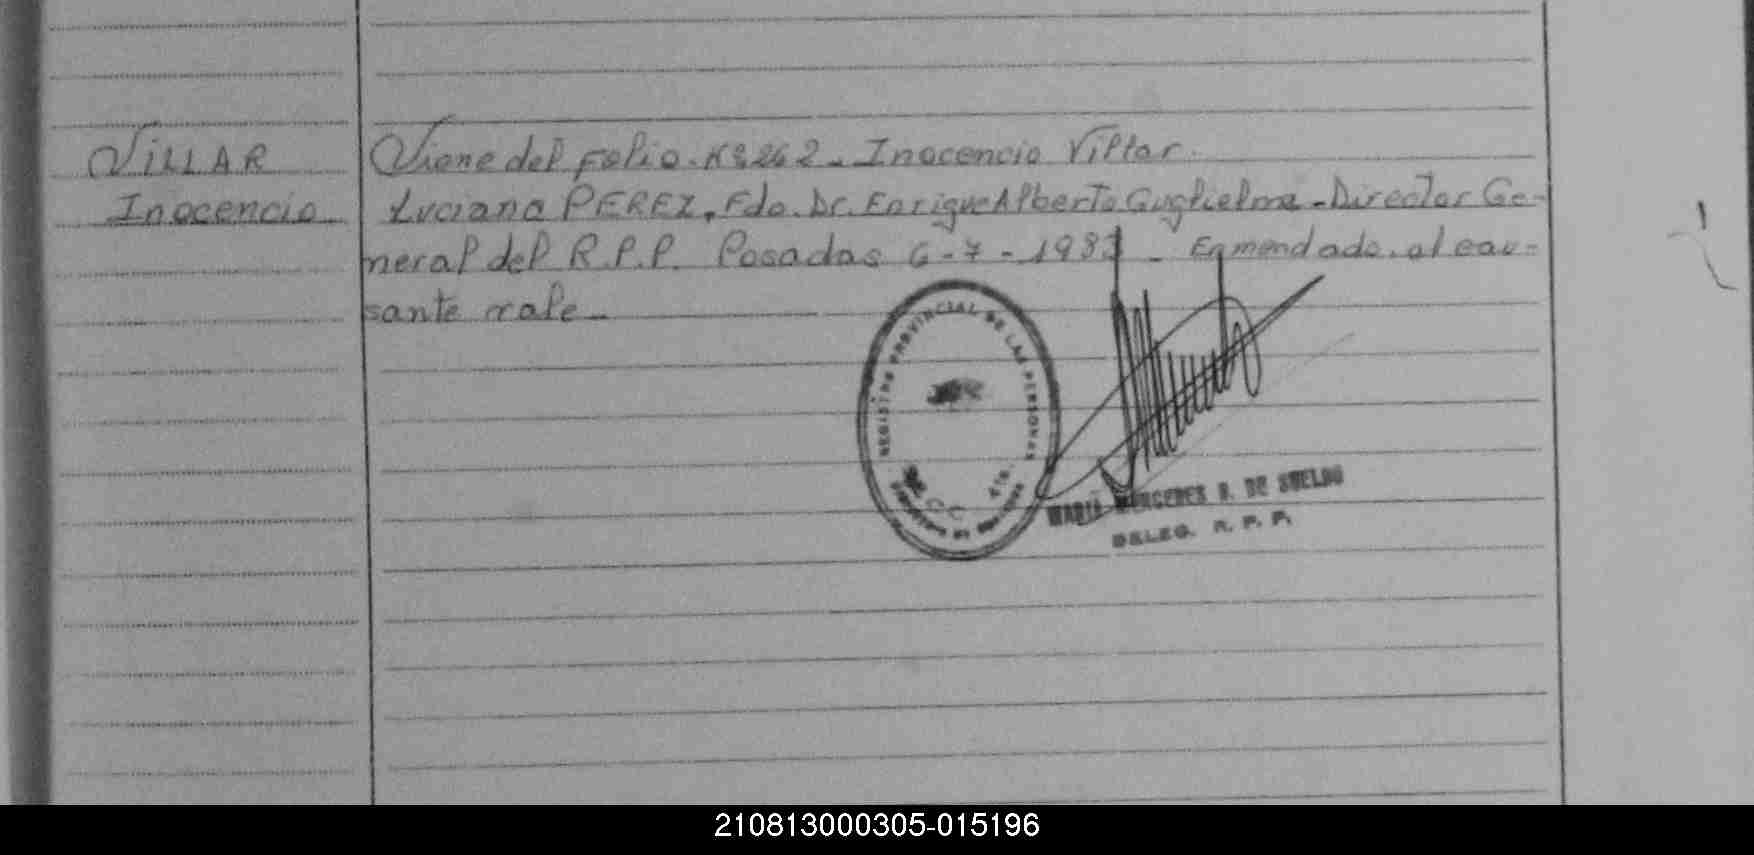 VILLAR
Inocencio
Viene del Folio Nº 262 - Inocencio Villar.
Luciana PEREZ, Fdo. Dr. Enrique Alberto Guglielmo - Director Ge-
neral del R.P.P. Posadas 6-7-1983 - Enmendado. al cau-
sante vale -
REGISTRO PROVINCIAL DE LAS PERSONAS
MARIA MERCEDES B. DE SUELDO
DELEG. R. P. P.
210813000305-015196